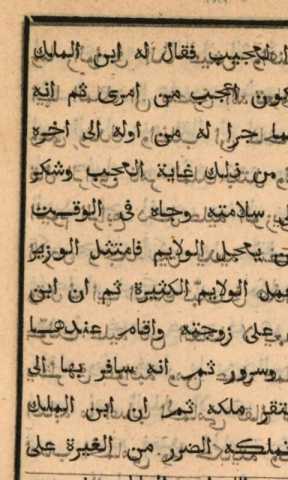 العجيب فقال له ابن الملك
اعجب من امرى ثم انه
جرا له من اوله الى اخره
من ذلك غاية العجب وشكر
سلامته وجاه فى الوقت
يعجل الولايم فامتثل الوزير
الولايم الكثيرة ثم ان ابن
على زوجته واقام عندها
وسرور ثم انه سافر بها الى
ملكه ثم ان ابن الملك
الضرر من الغيرة على